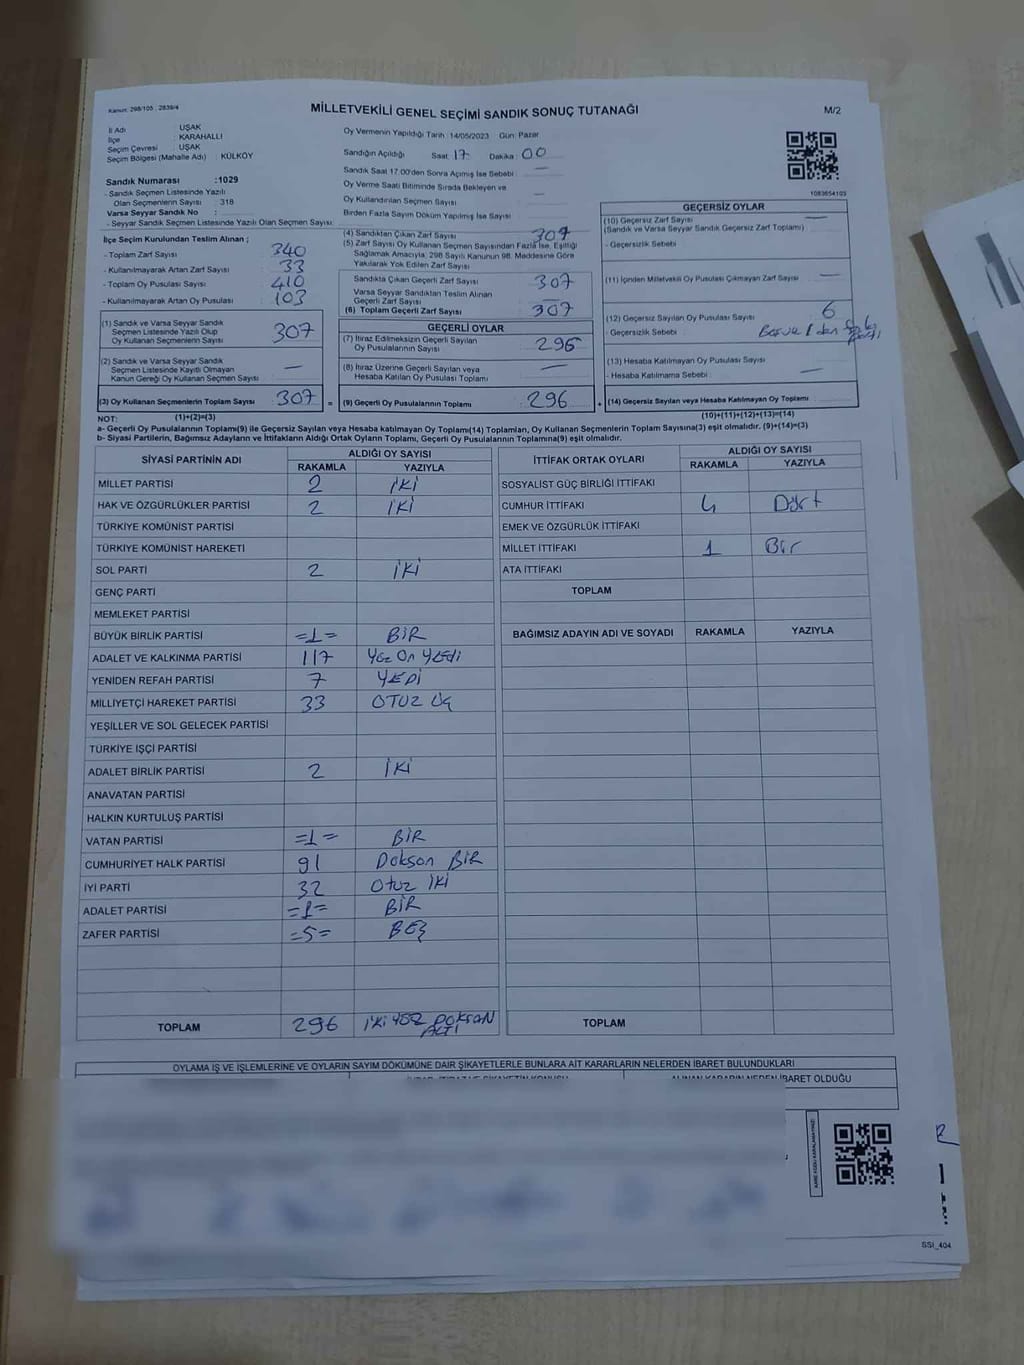 Kanun: 298/105 ; 2839/4
MİLLETVEKİLİ GENEL SEÇİMİ SANDIK SONUÇ TUTANAĞI
M/2
İl Adı : UŞAK
İlçe : KARAHALLI
Seçim Çevresi : UŞAK
Seçim Bölgesi (Mahalle Adı) : KÜLKÖY
Sandık Numarası :1029
- Sandık Seçmen Listesinde Yazılı
Olan Seçmenlerin Sayısı : 318
Varsa Seyyar Sandık No :
- Seyyar Sandık Seçmen Listesinde Yazılı Olan Seçmen Sayısı:
Oy Vermenin Yapıldığı Tarih :14/05/2023 Gün: Pazar
Sandığın Açıldığı Saat: 17 Dakika: 00
Sandık Saat 17.00'den Sonra Açılmış İse Sebebi : —
Oy Verme Saati Bitiminde Sırada Bekleyen ve
Oy Kullandırılan Seçmen Sayısı : —
Birden Fazla Sayım Döküm Yapılmış İse Sayısı :
1083654103
İlçe Seçim Kurulundan Teslim Alınan ;
- Toplam Zarf Sayısı : 340
- Kullanılmayarak Artan Zarf Sayısı : 33
- Toplam Oy Pusulası Sayısı : 410
- Kullanılmayarak Artan Oy Pusulası : 103
(1) Sandık ve Varsa Seyyar Sandık
Seçmen Listesinde Yazılı Olup
Oy Kullanan Seçmenlerin Sayısı : 307
(2) Sandık ve Varsa Seyyar Sandık
Seçmen Listesinde Kayıtlı Olmayan
Kanun Gereği Oy Kullanan Seçmen Sayısı : —
(3) Oy Kullanan Seçmenlerin Toplam Sayısı : 307 =
(4) Sandıktan Çıkan Zarf Sayısı : 307
(5) Zarf Sayısı Oy Kullanan Seçmen Sayısından Fazla İse, Eşitliği
Sağlamak Amacıyla; 298 Sayılı Kanunun 98. Maddesine Göre
Yakılarak Yok Edilen Zarf Sayısı :
Sandıkta Çıkan Geçerli Zarf Sayısı : 307
Varsa Seyyar Sandıktan Teslim Alınan
Geçerli Zarf Sayısı : —
(6) Toplam Geçerli Zarf Sayısı : 307
GEÇERLİ OYLAR
(7) İtiraz Edilmeksizin Geçerli Sayılan
Oy Pusulalarının Sayısı : 296
(8) İtiraz Üzerine Geçerli Sayılan veya
Hesaba Katılan Oy Pusulası Toplamı : —
(9) Geçerli Oy Pusulalarının Toplamı : 296 +
GEÇERSİZ OYLAR
(10) Geçersiz Zarf Sayısı : —
(Sandık ve Varsa Seyyar Sandık Geçersiz Zarf Toplamı)
- Geçersizlik Sebebi :
(11) İçinden Milletvekili Oy Pusulası Çıkmayan Zarf Sayısı : —
(12) Geçersiz Sayılan Oy Pusulası Sayısı : 6
- Geçersizlik Sebebi :
(13) Hesaba Katılmayan Oy Pusulası Sayısı :
- Hesaba Katılmama Sebebi : —
(14) Geçersiz Sayılan veya Hesaba Katılmayan Oy Toplamı :
NOT: (1)+(2)=(3) (10)+(11)+(12)+(13)=(14)
a- Geçerli Oy Pusulalarının Toplamı(9) ile Geçersiz Sayılan veya Hesaba Katılmayan Oy Toplamı(14) Toplamları, Oy Kullanan Seçmenlerin Toplam Sayısına(3) eşit olmalıdır. (9)+(14)=(3)
b- Siyasi Partilerin, Bağımsız Adayların ve İttifakların Aldığı Ortak Oyların Toplamı, Geçerli Oy Pusulalarının Toplamına(9) eşit olmalıdır.
SİYASİ PARTİNİN ADI ALDIĞI OY SAYISI
RAKAMLA YAZIYLA
MİLLET PARTİSİ 2 İKİ
HAK VE ÖZGÜRLÜKLER PARTİSİ 2 İKİ
TÜRKİYE KOMÜNİST PARTİSİ
TÜRKİYE KOMÜNİST HAREKETİ
SOL PARTİ 2 İKİ
GENÇ PARTİ
MEMLEKET PARTİSİ
BÜYÜK BİRLİK PARTİSİ =1= BİR
ADALET VE KALKINMA PARTİSİ 117 YÜZ ON YEDİ
YENİDEN REFAH PARTİSİ 7 YEDİ
MİLLİYETÇİ HAREKET PARTİSİ 33 OTUZ ÜÇ
YEŞİLLER VE SOL GELECEK PARTİSİ
TÜRKİYE İŞÇİ PARTİSİ
ADALET BİRLİK PARTİSİ 2 İKİ
ANAVATAN PARTİSİ
HALKIN KURTULUŞ PARTİSİ
VATAN PARTİSİ =1= BİR
CUMHURİYET HALK PARTİSİ 91 Dokson BİR
İYİ PARTİ 32 Otuz İKİ
ADALET PARTİSİ =1= BİR
ZAFER PARTİSİ =5= BEŞ
TOPLAM 296 İKİ YÜZ DOKSAN
ALTI
İTTİFAK ORTAK OYLARI ALDIĞI OY SAYISI
RAKAMLA YAZIYLA
SOSYALİST GÜÇ BİRLİĞİ İTTİFAKI
CUMHUR İTTİFAKI 4 Dört
EMEK VE ÖZGÜRLÜK İTTİFAKI
MİLLET İTTİFAKI 1 Bir
ATA İTTİFAKI
TOPLAM
BAĞIMSIZ ADAYIN ADI VE SOYADI RAKAMLA YAZIYLA
TOPLAM
OYLAMA İŞ VE İŞLEMLERİNE VE OYLARIN SAYIM DÖKÜMÜNE DAİR ŞİKAYETLERLE BUNLARA AİT KARARLARIN NELERDEN İBARET BULUNDUKLARI
ALINAN KARARIN NEDEN İBARET OLDUĞU
SSI_404